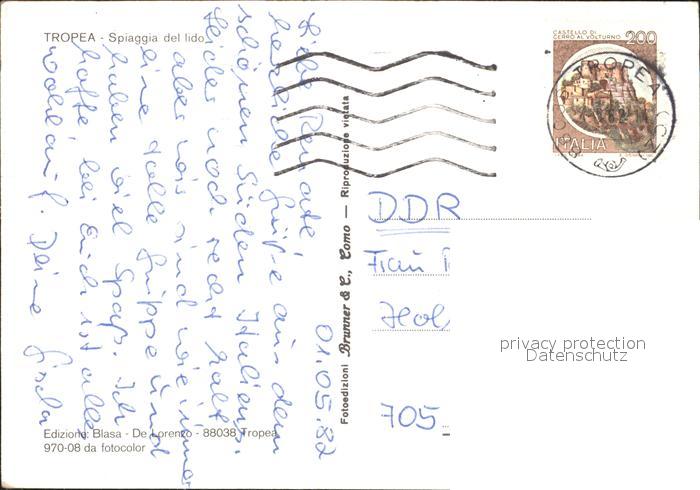 TROPEA - Spiaggia del lido
01.05.82
Liebe Renate
herzliche Grüße aus dem
schönen Süden Italiens.
Leider noch recht kalt,
aber wir sind wie immer
eine tolle Gruppe und
haben viel Spaß. Ich
hoffe, bei Euch ist alles
wohlauf. Deine Gisela
Edizione: Blasa - De Lorenzo - 88038 Tropea
970-08 da fotocolor
Fotoedizioni Brunner & C., Como — Riproduzione vietata
CASTELLO DI
CERRO AL VOLTURNO
200
ITALIA
TROPEA
DDR
Frau
Hol
705
privacy protection
Datenschutz